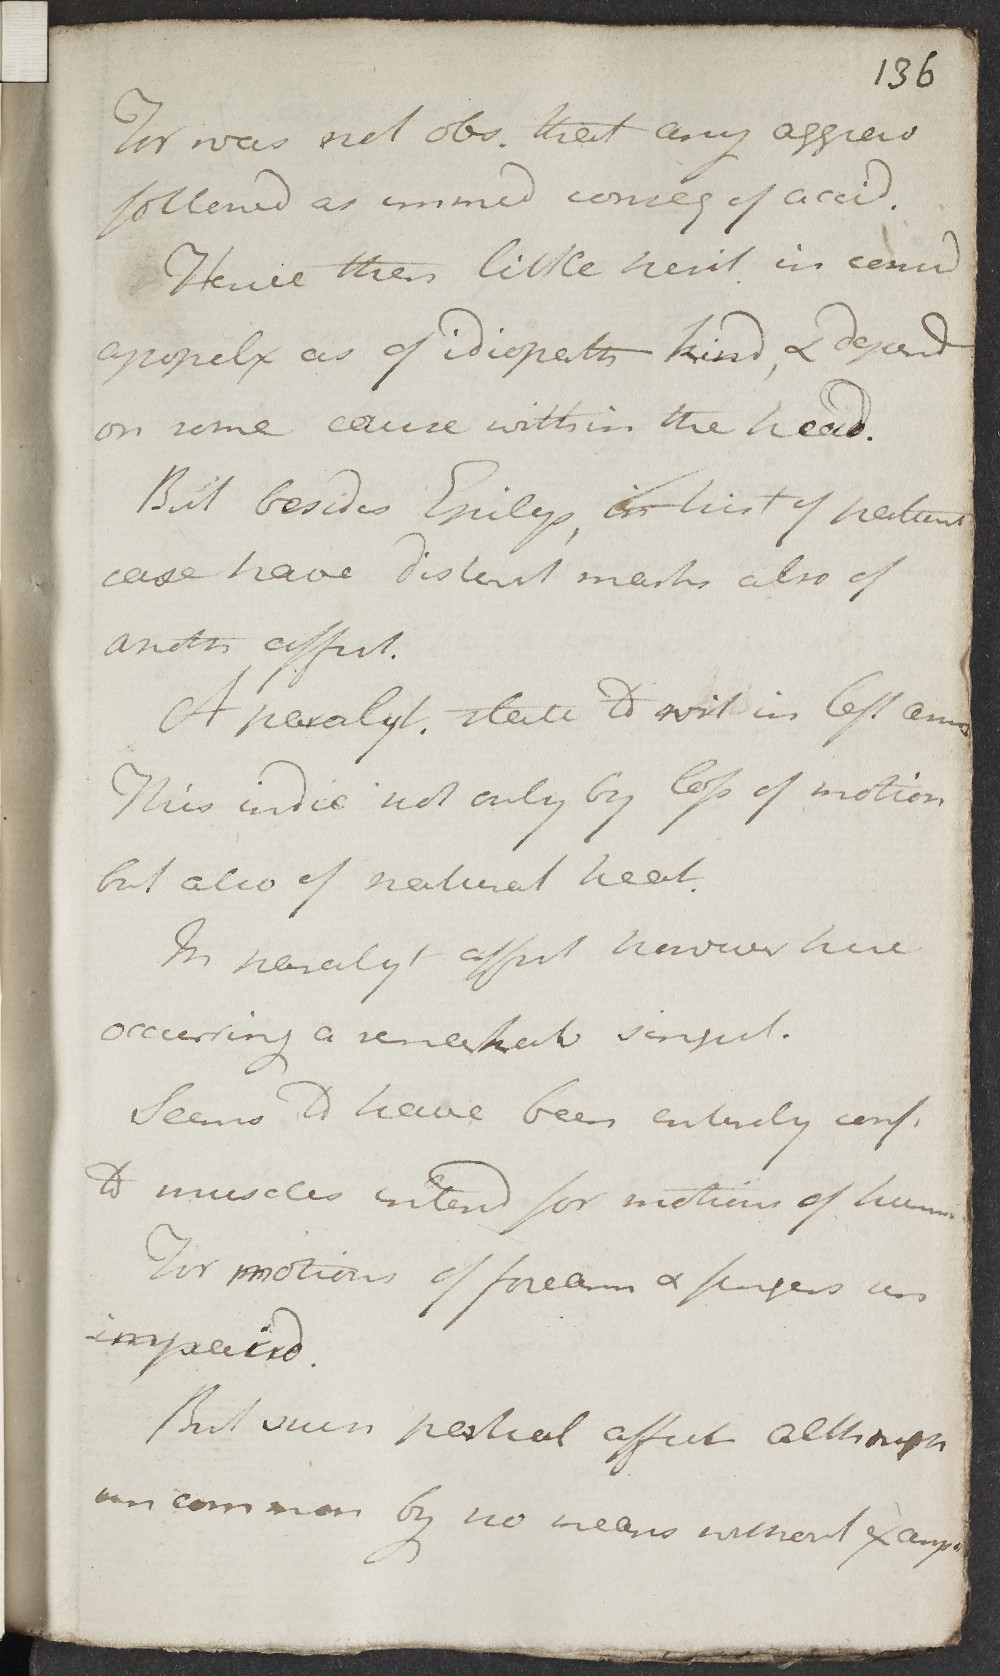 136
For was not obs. that any aggrav
followed as immed conseq of accid.
Hence then little hesit. in consid
apoplx as of idiopath kind, & depend
on some cause within the head.
But besides Epileps, in hist of patient
case have distinct marks also of
anoth affect.
A paralyt. state to wit in left arm
This indic not only by loss of motion
but also of natural heat.
In paralyt affect however here
occurring a remarkab singul.
Seems to have been entirely conf.
to muscles intend for motions of hum
For motions of forearm & fingers un
impaird.
But such partial affect although
uncommon by no means without examp